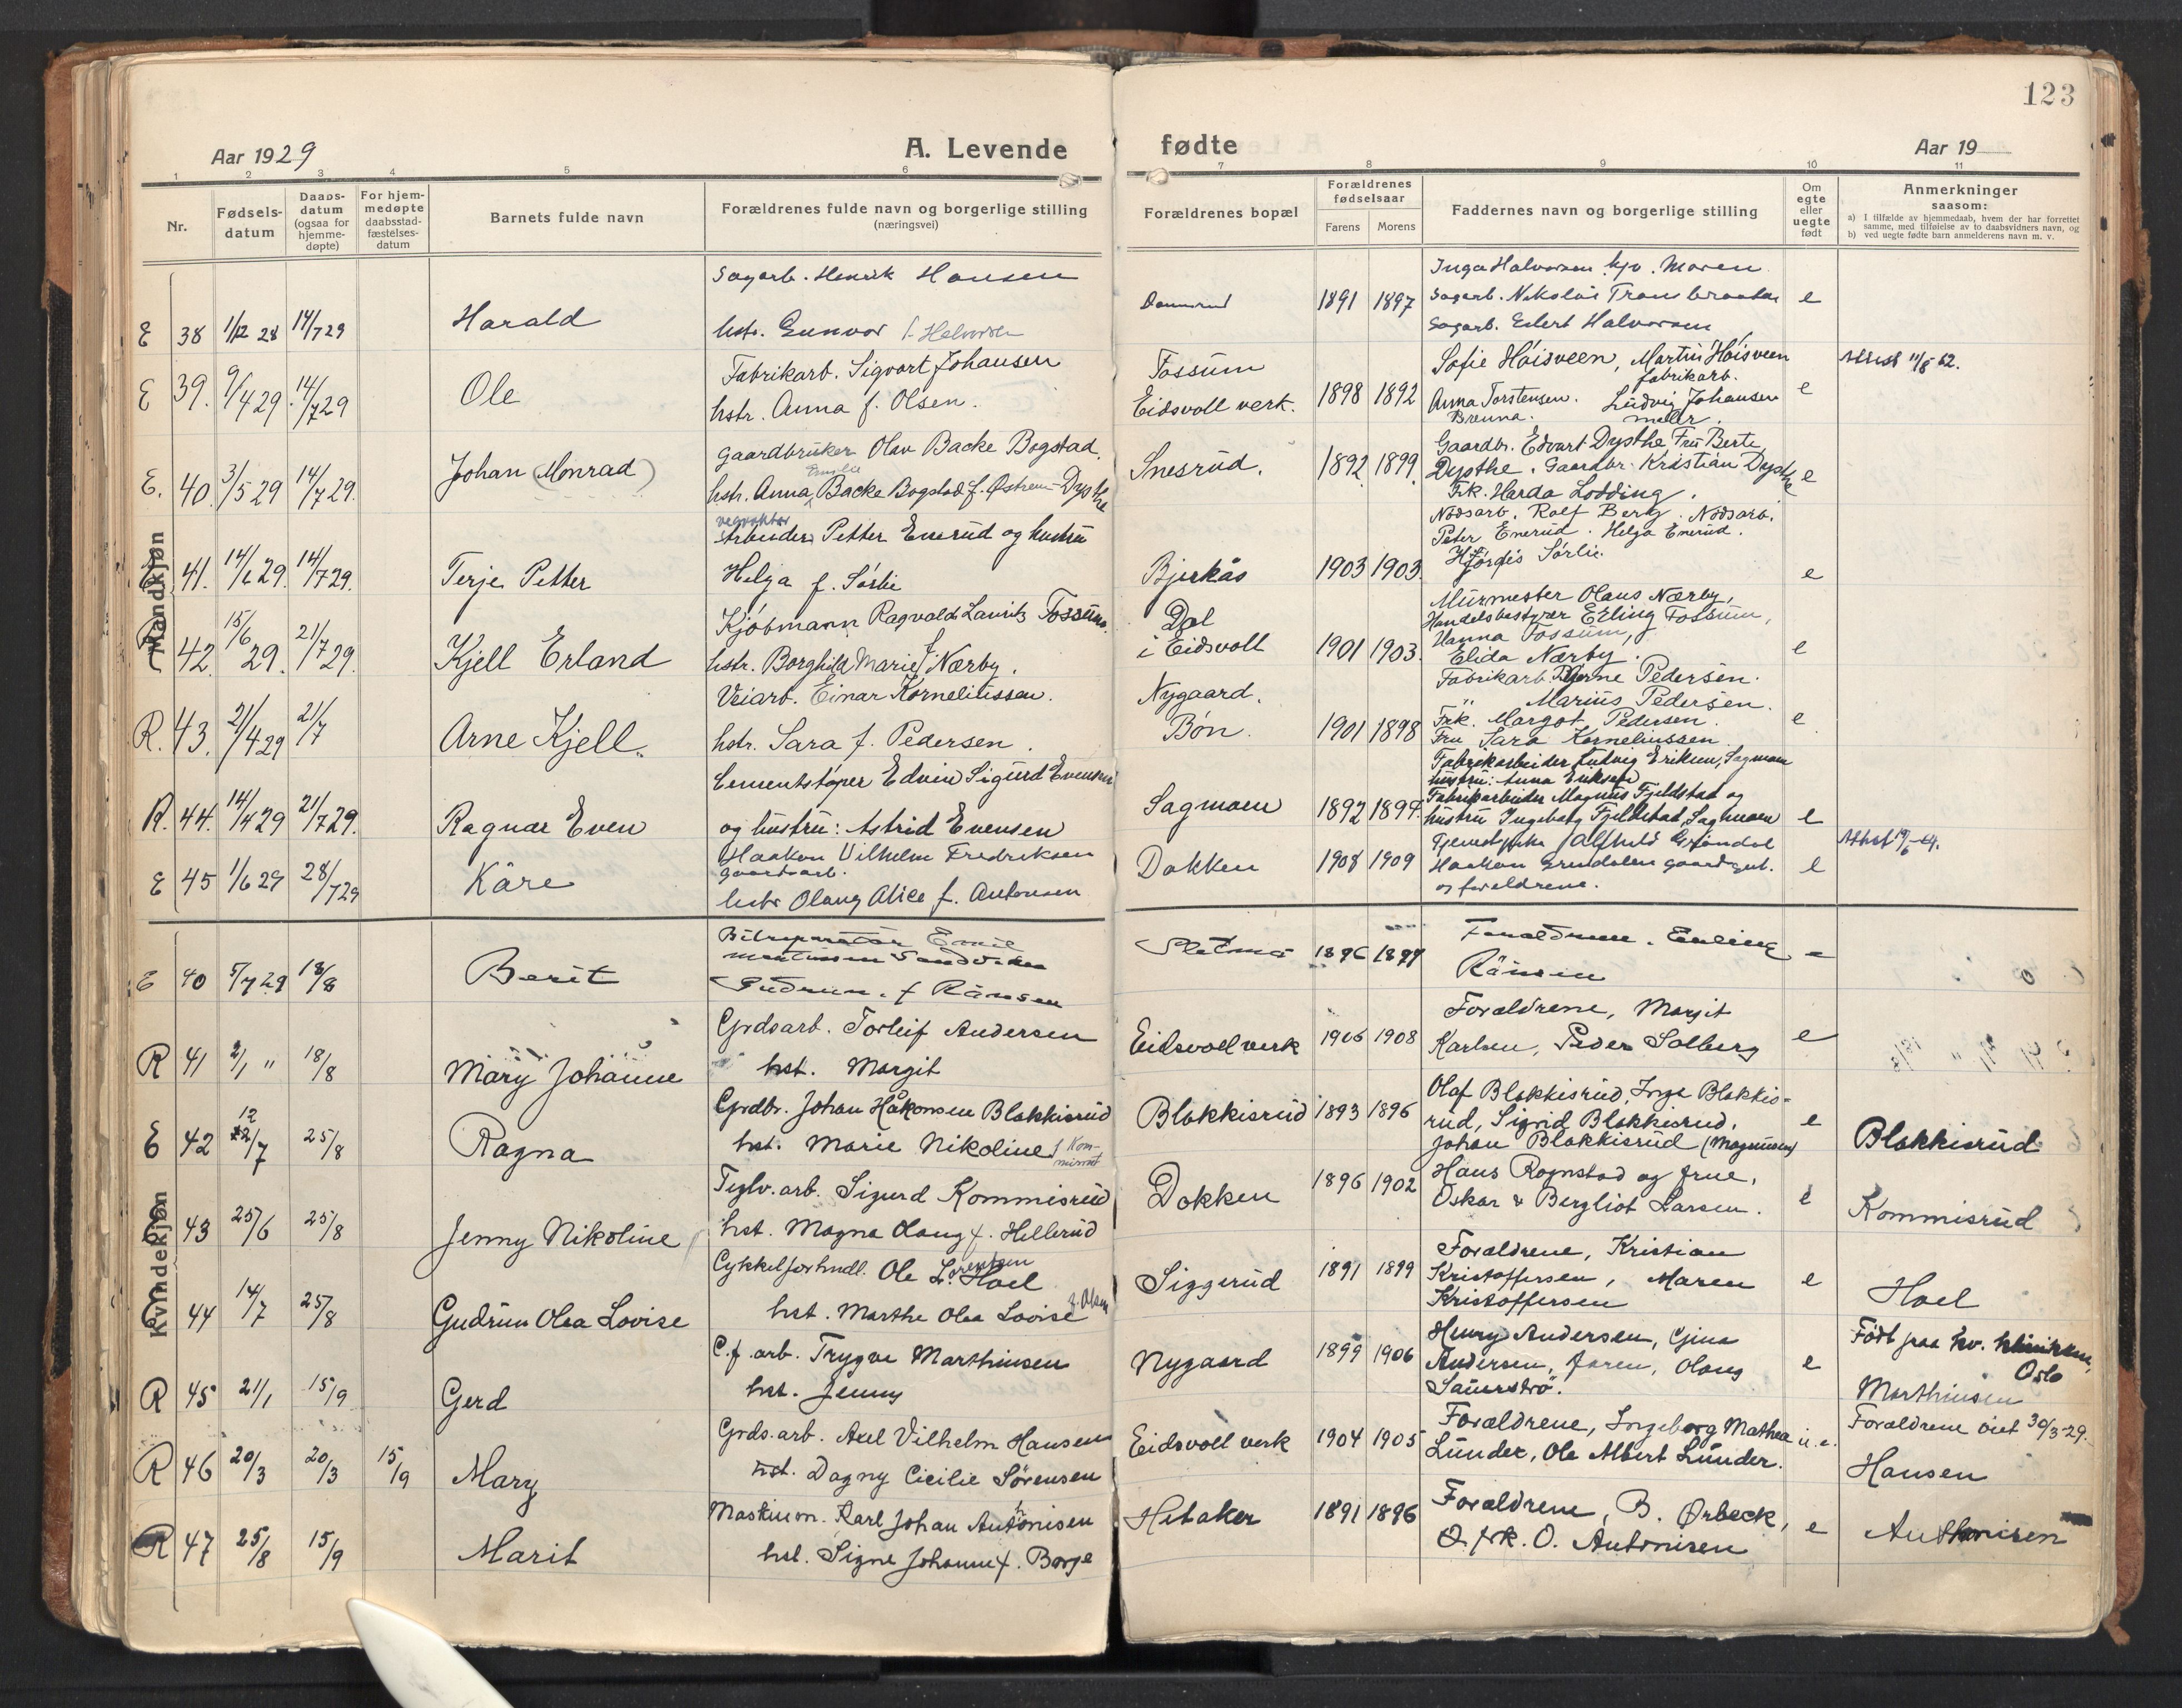 123
Aar 1929 A. Levende fødte Aar 19
1 2 3 4 5 6 7 8 9 10 11
Nr.
Fødsels-
datum
Daabs-
datum
(ogsaa for
hjemme-
døpte)
For hjem-
medøpte
daabsstad-
fæstelses-
datum
Barnets fulde navn
Forældrenes fulde navn og borgerlige stilling
(næringsvei)
Forældrenes bopæl
Forældrenes
fødselsaar
Farens Morens
Faddernes navn og borgerlige stilling
Om
egte
eller
uegte
født
Anmerkninger
saasom:
a) I tilfælde av hjemmedaab, hvem der har forrettet
samme, med tilføielse av to daabsvidners navn, og
b) ved uegte fødte barn anmelderens navn m. v.
Mandkjøn
E 38 1/12 28 14/7 29 Harald
Sagarb. Henrik Hansen
hstr. Gunvor f. Halvorsen
1891 1897
Inga Halvorsen
Sagarb. Nikolai Tronsbraaten
Sagarb. Edert Halvorsen
e
E 39. 9/4 29. 14/7 29 Ole
Fabrikarb. Sigvart Johansen
hstr. Anna f. Olsen.
Fossum
Eidsvoll verk.
1898 1892
Sofie Høisveen, Martin Høisveen
fabrikarb.
Anna Torstensen. Ludvig Johansen
Brenna. møller.
e
Attest 11/8 62.
E. 40. 3/5 29 14/7 29. Johan (Monrad)
Gaardbruker Olav Backe Bogstad.
Emilie
hstr. Anna Backe Bogstad f. Østrem-Dysthe
Snesrud.
1892 1899
Gaardbr. Edvart Dysthe Fru Berte
Dysthe. Gaardbr. Kristian Dysthe
Frk. Harda Lodding.
e
E 41. 14/6 29. 14/7 29. Terje Petter
vegvokter
Arbeider Petter Enerud og hustru
Helga f. Sørlie
Bjerkås
1903 1903.
Nødsarb. Rolf Berg. Nødsarb.
Peter Enerud. Helga Enerud.
Hjørdis Sørlie.
e
R 42. 15/6 29. 21/7 29. Kjell Erland
Kjøbmann Ragvald Lauritz Fossum.
hstr. Borghild Marie f. Nærby.
Dal
i Eidsvoll
1901 1903.
Murmester Olaus Nærby,
Handelsbestyrer Erling Fossum,
Hanna Fossum,
Elida Nærby.
e
R. 43. 21/4 29 21/7 Arne Kjell.
Veiarb. Einar Korneliussen.
hstr. Sara f. Pedersen.
Nygaard.
Bøn.
1901 1898
Fabrikarb. Bjarne Pedersen.
" Marius Pedersen.
Frk. Margot Pedersen.
Fru Sara Korneliussen
e
R. 44. 14/4 29 21/7 29. Ragnar Even
Cementstøper Edvin Sigurd Evensen
og hustru: Astrid Evensen
Sagmoen
1892 1897.
Fabrikarbeider Ludvig Eriksen, Sagmoen
hustru: Anna Eriksen
Fabrikarbeider Magnus Fjeldstad og
hustru Ingeborg Fjeldstad, Sagmoen
e
E 45 1/6 29 28/7 29 Kåre
Haakon Vilhelm Fredriksen
gaardsarb.
hstr Olaug Alice f. Antonsen
Dokken
1908 1909
Tjenestepike Alfhild Grøndal
Haakon Grndalen gaardgut.
og foreldrene.
e
Kvindekjøn
E 40 5/7 29 18/8 Berit
Bilreparatør Emil
Gudrun. f Rånsen
1896 1899
Foreldrene. Erling
Rånsen
e
R 41 2/1 " 18/8 Mary Johanne
Grdsarb. Torleif Andersen
hst. Margit
Eidsvoll verk
1906 1908
Foreldrene, Margit
Karlsen, Peder Solberg
e
E 42 12/7 25/8 Ragna
Grdbr. Johan Håkonsen Blakkisrud
hst. Marie Nikoline f Kommisrud
Blakkisrud
1893 1896
Olaf Blakkisrud, Inga Blakkis-
rud, Sigrid Blakkisrud.
Johan Blakkisrud (Magnussen)
e
Blakkisrud
E 43 25/6 25/8 Jenny Nikoline
Teglv. arb. Sigurd Kommisrud
hst. Magna Olaug f. Hellerud
Dokken
1896 1902
Hans Rognstad og frue,
Oskar & Bergliot Larsen.
e
Kommisrud
44 14/7 25/8 Gudrun Olea Lovise
Cykkelforhndl. Ole Lorentsen Hoel
hst. Marthe Olea Lovise f. Olsen
Siggerud
1891 1899
Foreldrene, Kristian
Kristoffersen, Maren
Kristoffersen
e
Hoel
R 45 21/1 15/9 Gerd
C.f. arb. Trygve Marthinsen
hst. Jenny
Nygaard
1899 1906
Henry Andersen, Gina
Andersen, faren, Olaug
e
Født paa kv. klinikken,
Oslo
Marthinsen
R 46 20/3 20/3 15/9 Mary
Grds. arb. Axel Vilhelm Hansen
hst. Dagny Cicilie Sørensen
Eidsvoll verk
1904 1905
Foreldrene, Ingeborg Mathea
Lunder, Ole Albert Lunder.
u.e.
Foreldrene viet 30/3-29.
Hansen
R 47 25/8 15/9 Marit
Maskinm. Karl Johan Anthonisen
hst. Signe Johanne f. Borge
Hetaker
1891 1896
Foreldrene, B. Ørbeck,
O. frk. O. Antonisen
e
Anthonisen